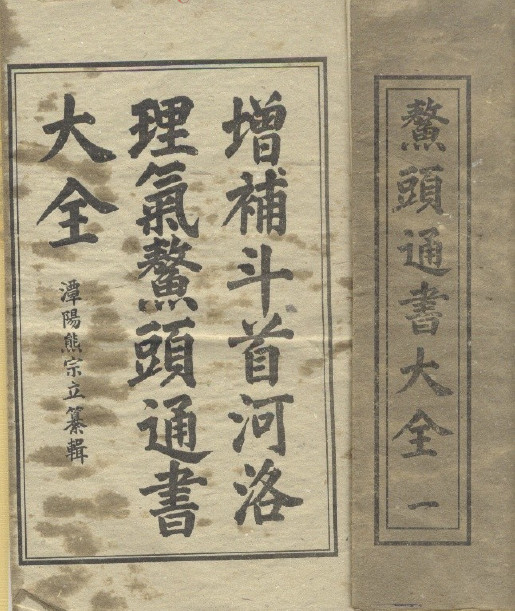 鰲頭通書大全 一
增補斗首河洛
理氣鰲頭通書
大全
潭陽熊宗立纂輯